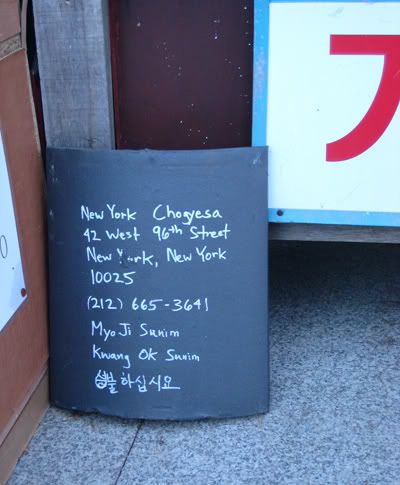 New York Chogyesa
42 West 96th Street
New York, New York
10025
(212) 665-3641
Myo Ji Sunim
Kwang Ok Sunim
성불하십시요